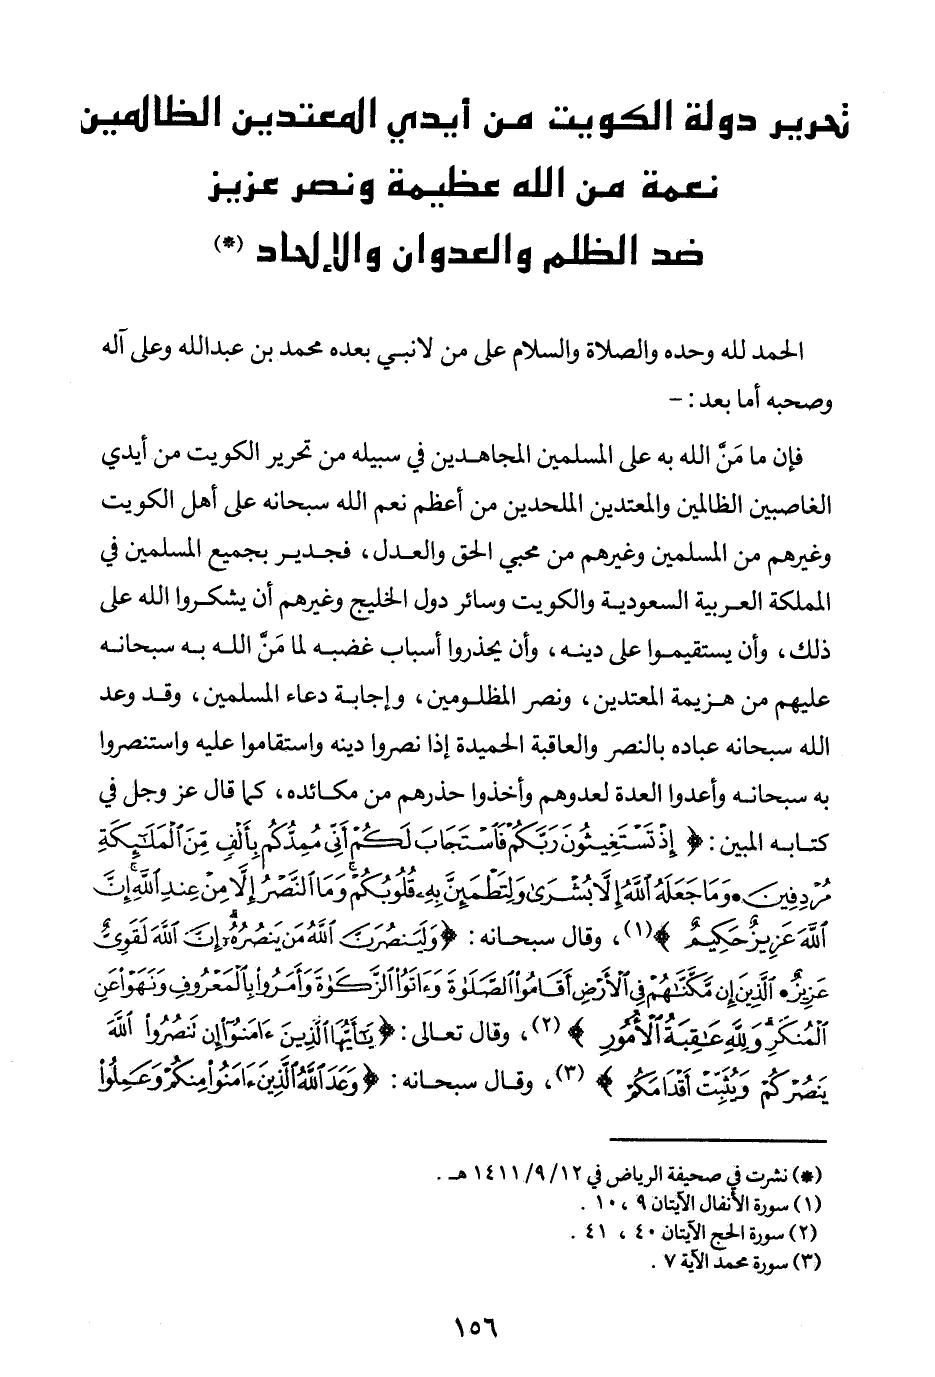 تحرير دولة الكويت من أيدي المعتدين الظالمين
نعمة من الله عظيمة ونصر عزيز
ضد الظلم والعدوان والإلحاد (*)
الحمد لله وحده والصلاة والسلام على من لانبي بعده محمد بن عبدالله وعلى آله
وصحبه أما بعد : -
فإن ما مَنَّ الله به على المسلمين المجاهدين في سبيله من تحرير الكويت من أيدي
الغاصبين الظالمين والمعتدين الملحدين من أعظم نعم الله سبحانه على أهل الكويت
وغيرهم من المسلمين وغيرهم من محبي الحق والعدل ، فجدير بجميع المسلمين في
المملكة العربية السعودية والكويت وسائر دول الخليج وغيرهم أن يشكروا الله على
ذلك ، وأن يستقيموا على دينه ، وأن يحذروا أسباب غضبه لما مَنَّ الله به سبحانه
عليهم من هزيمة المعتدين ، ونصر المظلومين ، وإجابة دعاء المسلمين ، وقد وعد
الله سبحانه عباده بالنصر والعاقبة الحميدة إذا نصروا دينه واستقاموا عليه واستنصروا
به سبحانه وأعدوا العدة لعدوهم وأخذوا حذرهم من مكائده ، كما قال عز وجل في
كتابه المبين : ﴿ إِذْ تَسْتَغِيثُونَ رَبَّكُمْ فَٱسْتَجَابَ لَكُمْ أَنِّي مُمِدُّكُم بِأَلْفٍ مِّنَ ٱلْمَلَٰٓئِكَةِ
مُرْدِفِينَ • وَمَا جَعَلَهُ ٱللَّهُ إِلَّا بُشْرَىٰ وَلِتَطْمَئِنَّ بِهِۦ قُلُوبُكُمْ ۚ وَمَا ٱلنَّصْرُ إِلَّا مِنْ عِندِ ٱللَّهِ ۚ إِنَّ
ٱللَّهَ عَزِيزٌ حَكِيمٌ ﴾ (١) ، وقال سبحانه : ﴿ وَلَيَنصُرَنَّ ٱللَّهُ مَن يَنصُرُهُۥٓ ۗ إِنَّ ٱللَّهَ لَقَوِىٌّ
عَزِيزٌ • ٱلَّذِينَ إِن مَّكَّنَّٰهُمْ فِى ٱلْأَرْضِ أَقَامُوا۟ ٱلصَّلَوٰةَ وَءَاتَوُا۟ ٱلزَّكَوٰةَ وَأَمَرُوا۟ بِٱلْمَعْرُوفِ وَنَهَوْا۟ عَنِ
ٱلْمُنكَرِ ۗ وَلِلَّهِ عَٰقِبَةُ ٱلْأُمُورِ ﴾ (٢) ، وقال تعالى : ﴿ يَٰٓأَيُّهَا ٱلَّذِينَ ءَامَنُوٓا۟ إِن تَنصُرُوا۟ ٱللَّهَ
يَنصُرْكُمْ وَيُثَبِّتْ أَقْدَامَكُمْ ﴾ (٣) ، وقال سبحانه : ﴿ وَعَدَ ٱللَّهُ ٱلَّذِينَ ءَامَنُوا۟ مِنكُمْ وَعَمِلُوا۟
(*) نشرت في صحيفة الرياض في ١٢ /٩ /١٤١١ هـ .
(١) سورة الأنفال الآيتان ٩ ، ١٠ .
(٢) سورة الحج الآيتان ٤٠ ، ٤١ .
(٣) سورة محمد الآية ٧ .
١٥٦